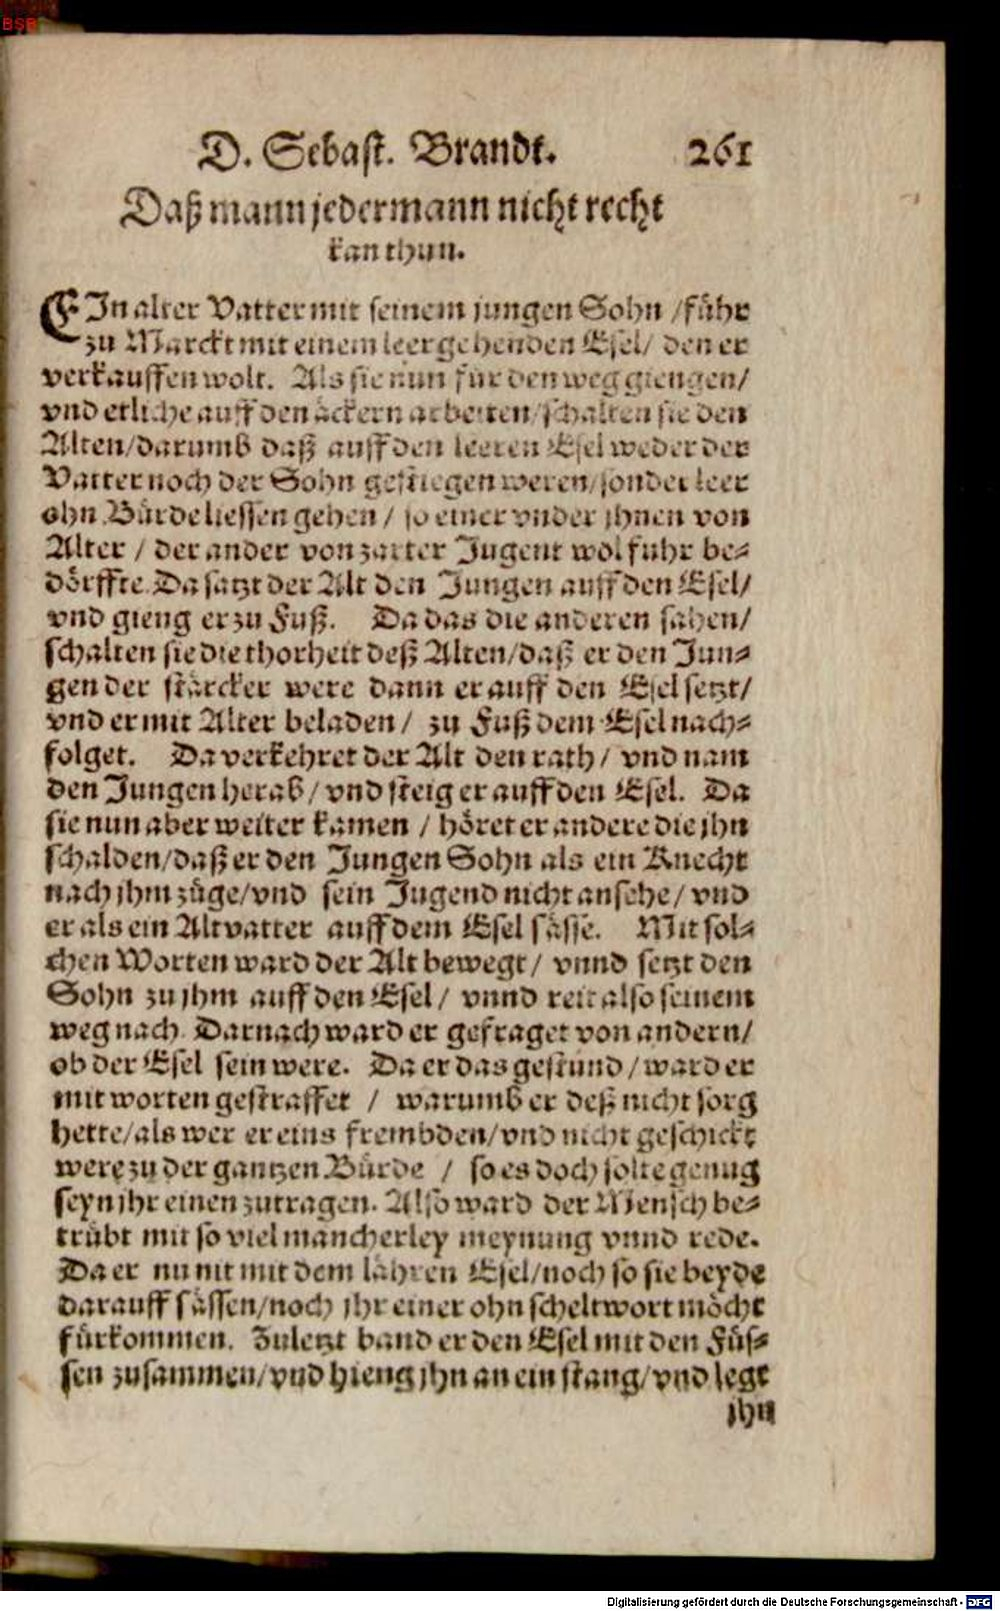 BSB
D. Sebast. Brandt. 261
Daß mann jedermann nicht recht
kan thun.
EIn alter Vatter mit seinem jungen Sohn / führ
zu Marckt mit einem leer gehenden Esel / den er
verkauffen wolt. Als sie nun für den weg giengen /
vnd etliche auff den äckern arbeiten / schalten sie den
Alten / darumb daß auff den leeren Esel weder der
Vatter noch der Sohn gestiegen weren / sonder leer
ohn Bürde liessen gehen / so einer vnder jhnen von
Alter / der ander von zarter Jugent wol fuhr be-
dörffte. Da satzt der Alt den Jungen auff den Esel /
vnd gieng er zu Fuß. Da das die anderen sahen /
schalten sie die thorheit deß Alten / daß er den Jun-
gen der stärcker were dann er auff den Esel setzt /
vnd er mit Alter beladen / zu Fuß dem Esel nach-
folget. Da verkehret der Alt den rath / vnd nam
den Jungen herab / vnd steig er auff den Esel. Da
sie nun aber weiter kamen / höret er andere die jhn
schalden / daß er den Jungen Sohn als ein Knecht
nach jhm züge / vnd sein Jugend nicht ansehe / vnd
er als ein Altvatter auff dem Esel sässe. Mit sol-
chen Worten ward der Alt bewegt / vnnd setzt den
Sohn zu jhm auff den Esel / vnnd reit also seinem
weg nach. Darnach ward er gefraget von andern /
ob der Esel sein were. Da er das gestund / ward er
mit worten gestraffet / warumb er deß nicht sorg
hette / als wer er eins frembden / vnd nicht geschickt
were zu der gantzen Bürde / so es doch solte genug
seyn jhr einen zutragen. Also ward der Mensch be-
trübt mit so viel mancherley meynung vnnd rede.
Da er nu nit mit dem lähren Esel / noch so sie beyde
darauff sässen / noch jhr einer ohn scheltwort möcht
fürkommen. Zuletzt band er den Esel mit den Füs-
sen zusammen / vnd hieng jhn an ein stang / vnd legt
jhn
Digitalisierung gefördert durch die Deutsche Forschungsgemeinschaft - DFG